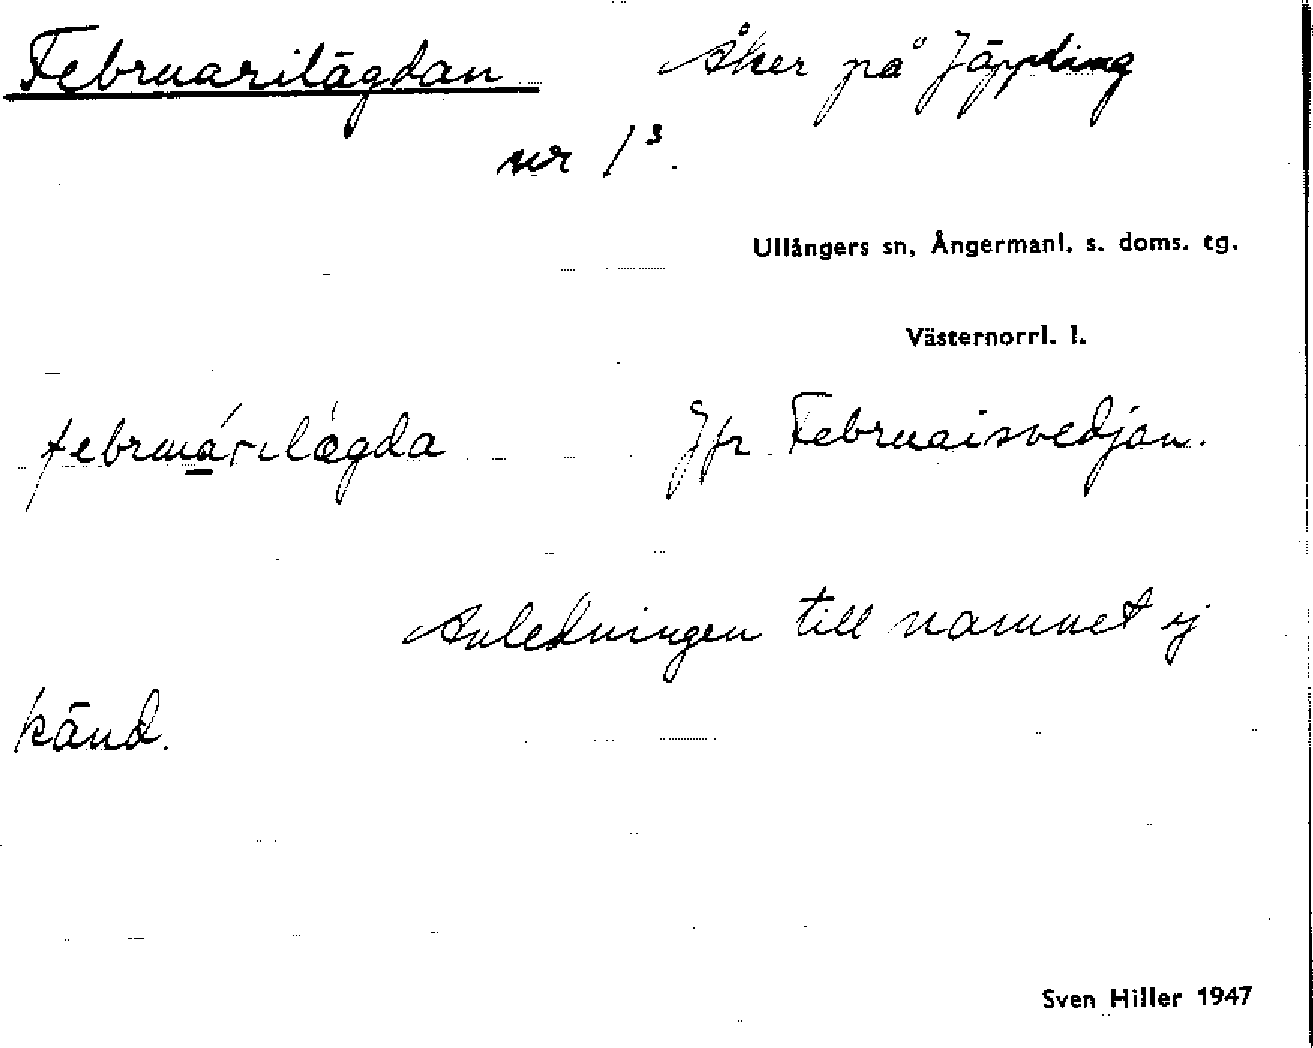 Februarilägdan Åker på Jäppling
nr 1³.
Ullångers sn, Ångermanl. s. doms. tg.
Västernorrl. l.
februárilægda Jfr Februarisvedjan.
Anledningen till namnet ej
känd.
Sven Hiller 1947